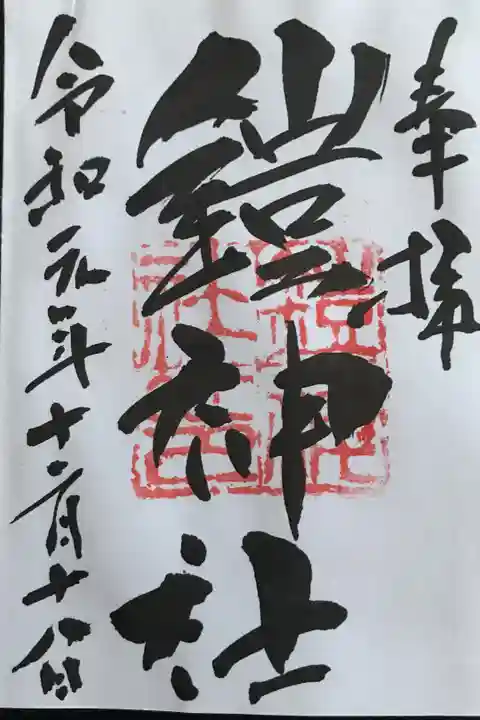 奉拝
鎧神社
令和元年十二月十八日